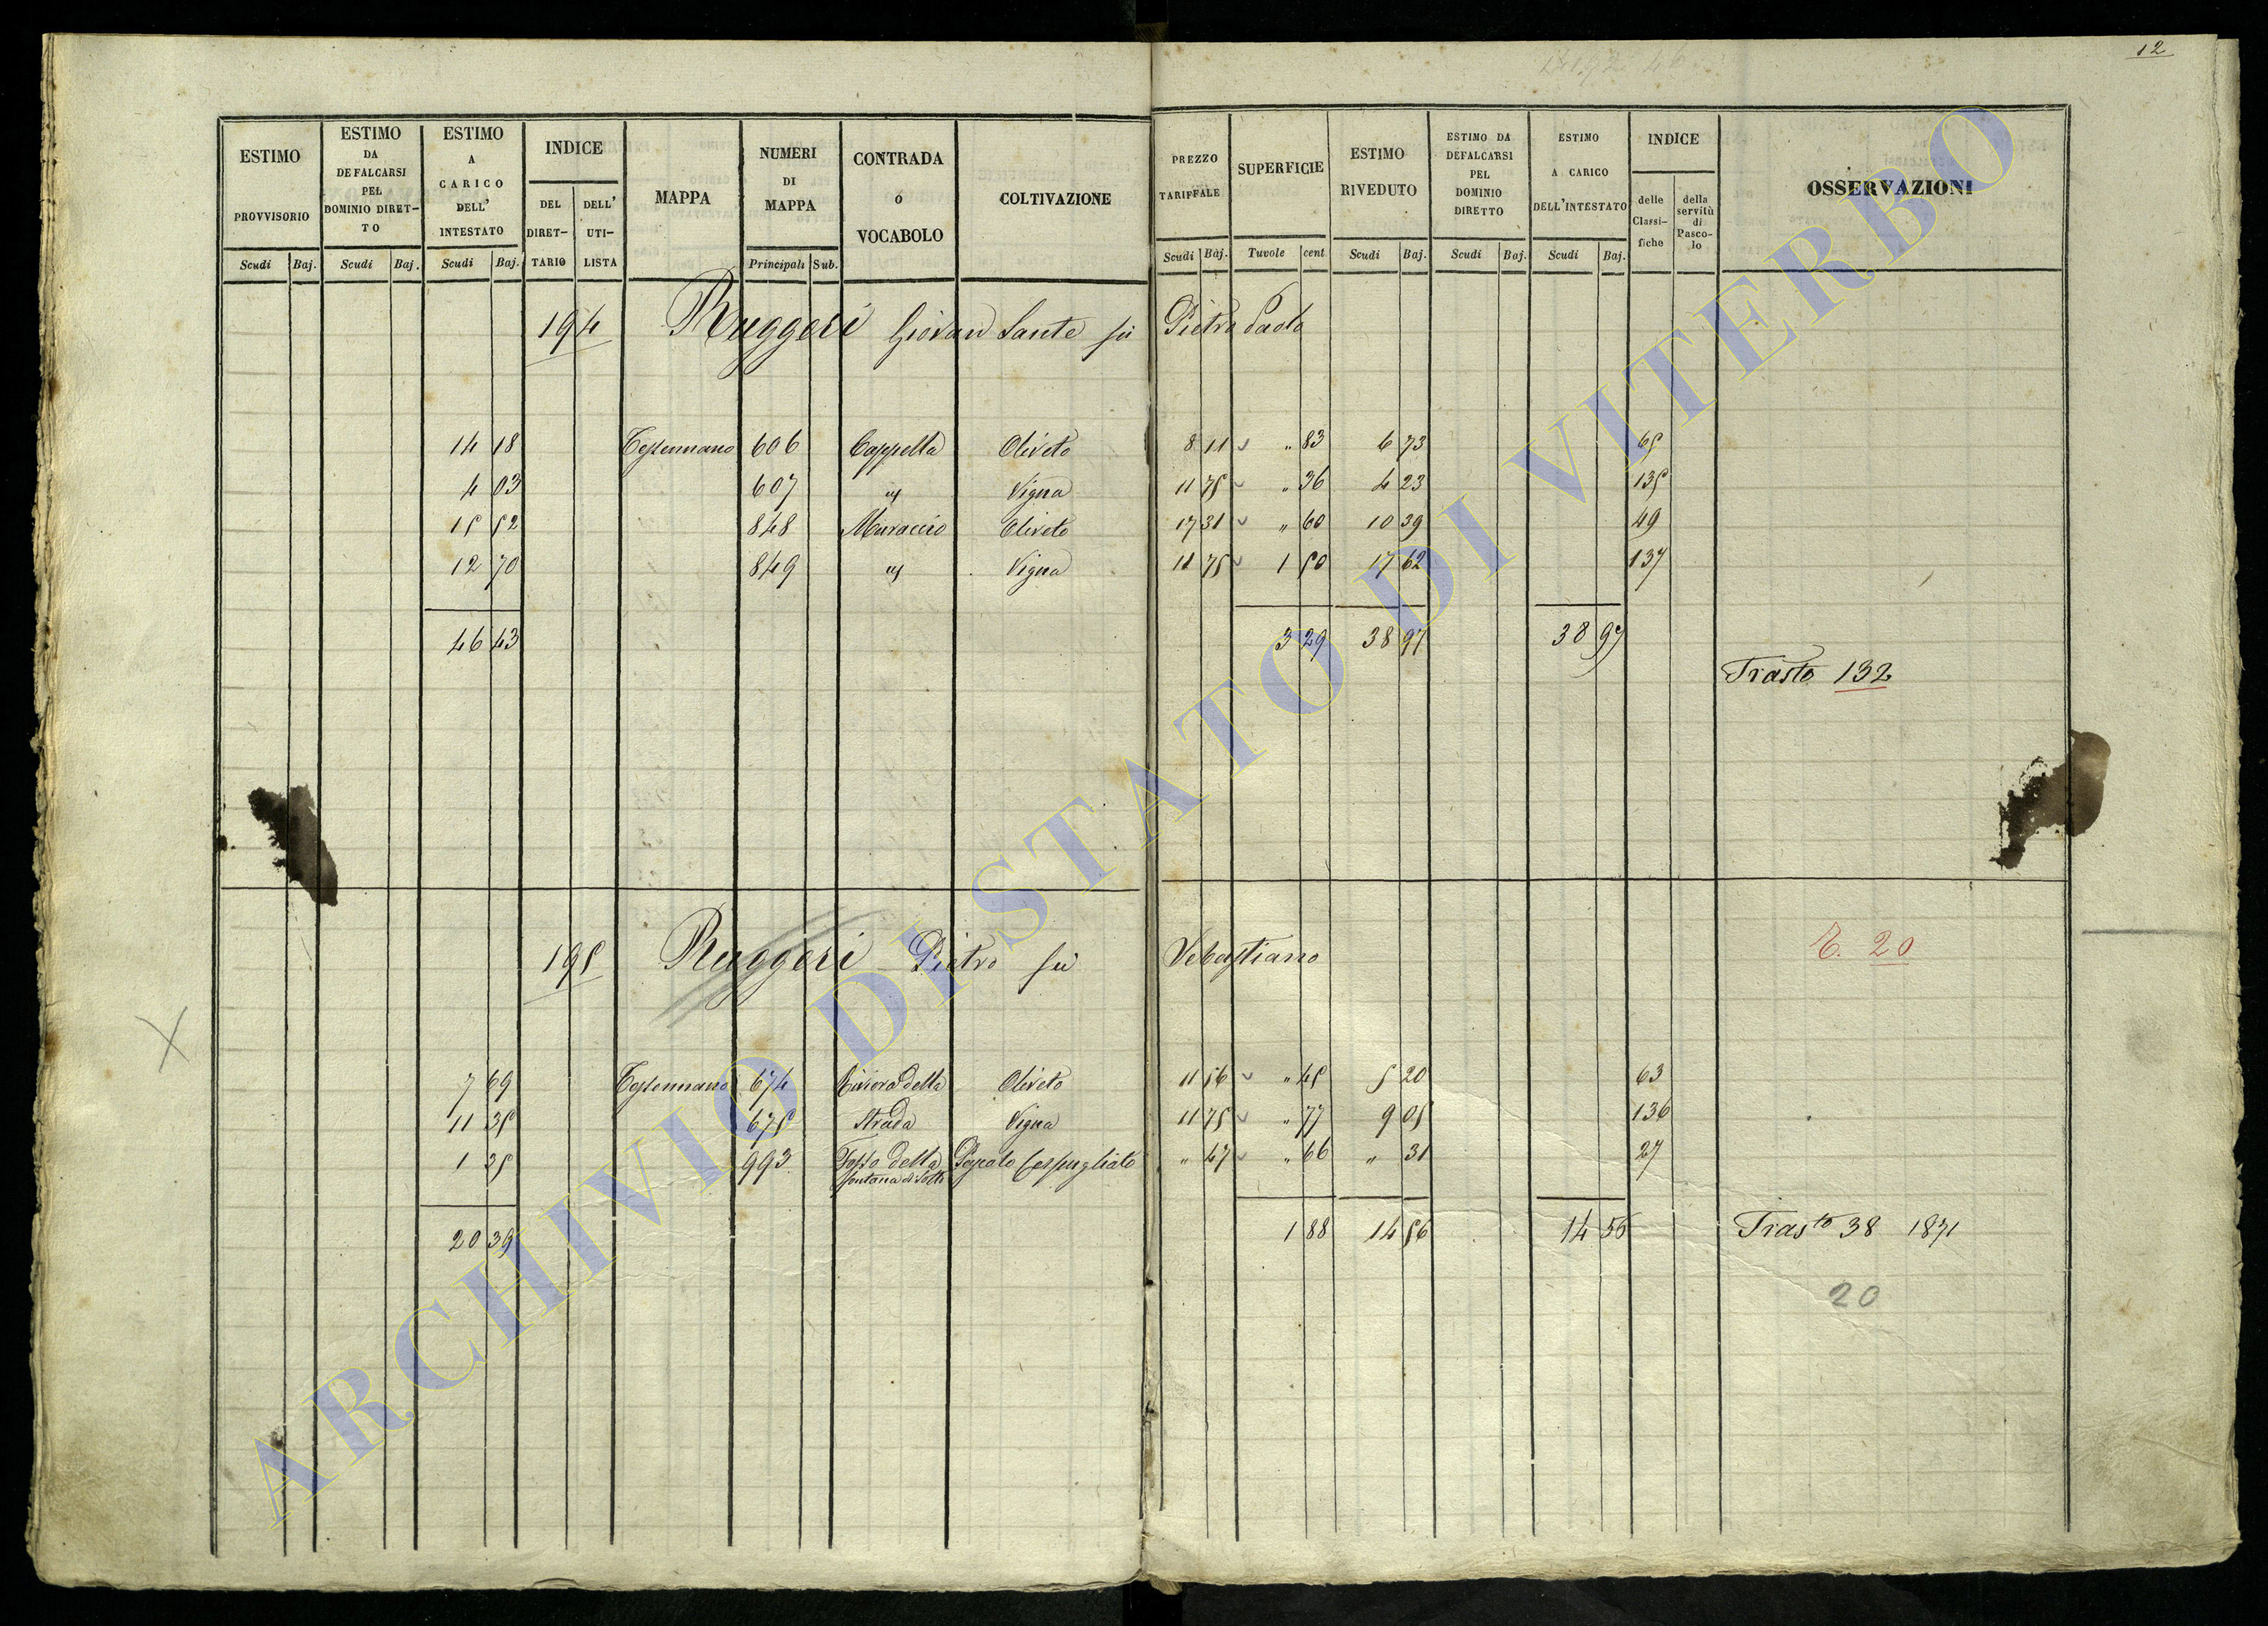 12
ESTIMO PROVVISORIO
ESTIMO DA DEFALCARSI PEL DOMINIO DIRET-TO
ESTIMO A CARICO DELL' INTESTATO
INDICE
DEL DIRET-TARIO
DELL' UTI-LISTA
MAPPA
NUMERI DI MAPPA
CONTRADA ó VOCABOLO
COLTIVAZIONE
PREZZO TARIFFALE
SUPERFICIE
ESTIMO RIVEDUTO
ESTIMO DA DEFALCARSI PEL DOMINIO DIRETTO
ESTIMO A CARICO DELL'INTESTATO
INDICE
delle Classi-fiche
della servitù di Pasco-lo
OSSERVAZIONI
Scudi Baj. Scudi Baj. Scudi Baj. Principali Sub. Scudi Baj. Tavole cent Scudi Baj. Scudi Baj. Scudi Baj.
194 Ruggeri Giovan Sante fu Pietro Paolo
14 18 Tessennano 606 Cappella Oliveto 8 11 " 83 6 73 65
4 03 607 " Vigna 11 75 " 36 4 23 135
15 52 848 Muraccio Oliveto 17 31 " 60 10 39 49
12 70 849 " Vigna 11 75 1 50 17 62 137
46 43 3 29 38 97 38 97
Trasto 132
195 Ruggeri Pietro fu Sebastiano
T. 20
7 69 Tessennano 674 della Oliveto 11 56 " 45 5 20 63
11 35 675 Strada Vigna 11 75 " 77 9 05 136
1 35 993 Fosso della fontana di sotto Pascolo Cespugliato " 47 " 66 " 31 27
20 39 1 88 14 56 14 56 Trasto 38 1871
20
ARCHIVIO DI STATO DI VITERBO